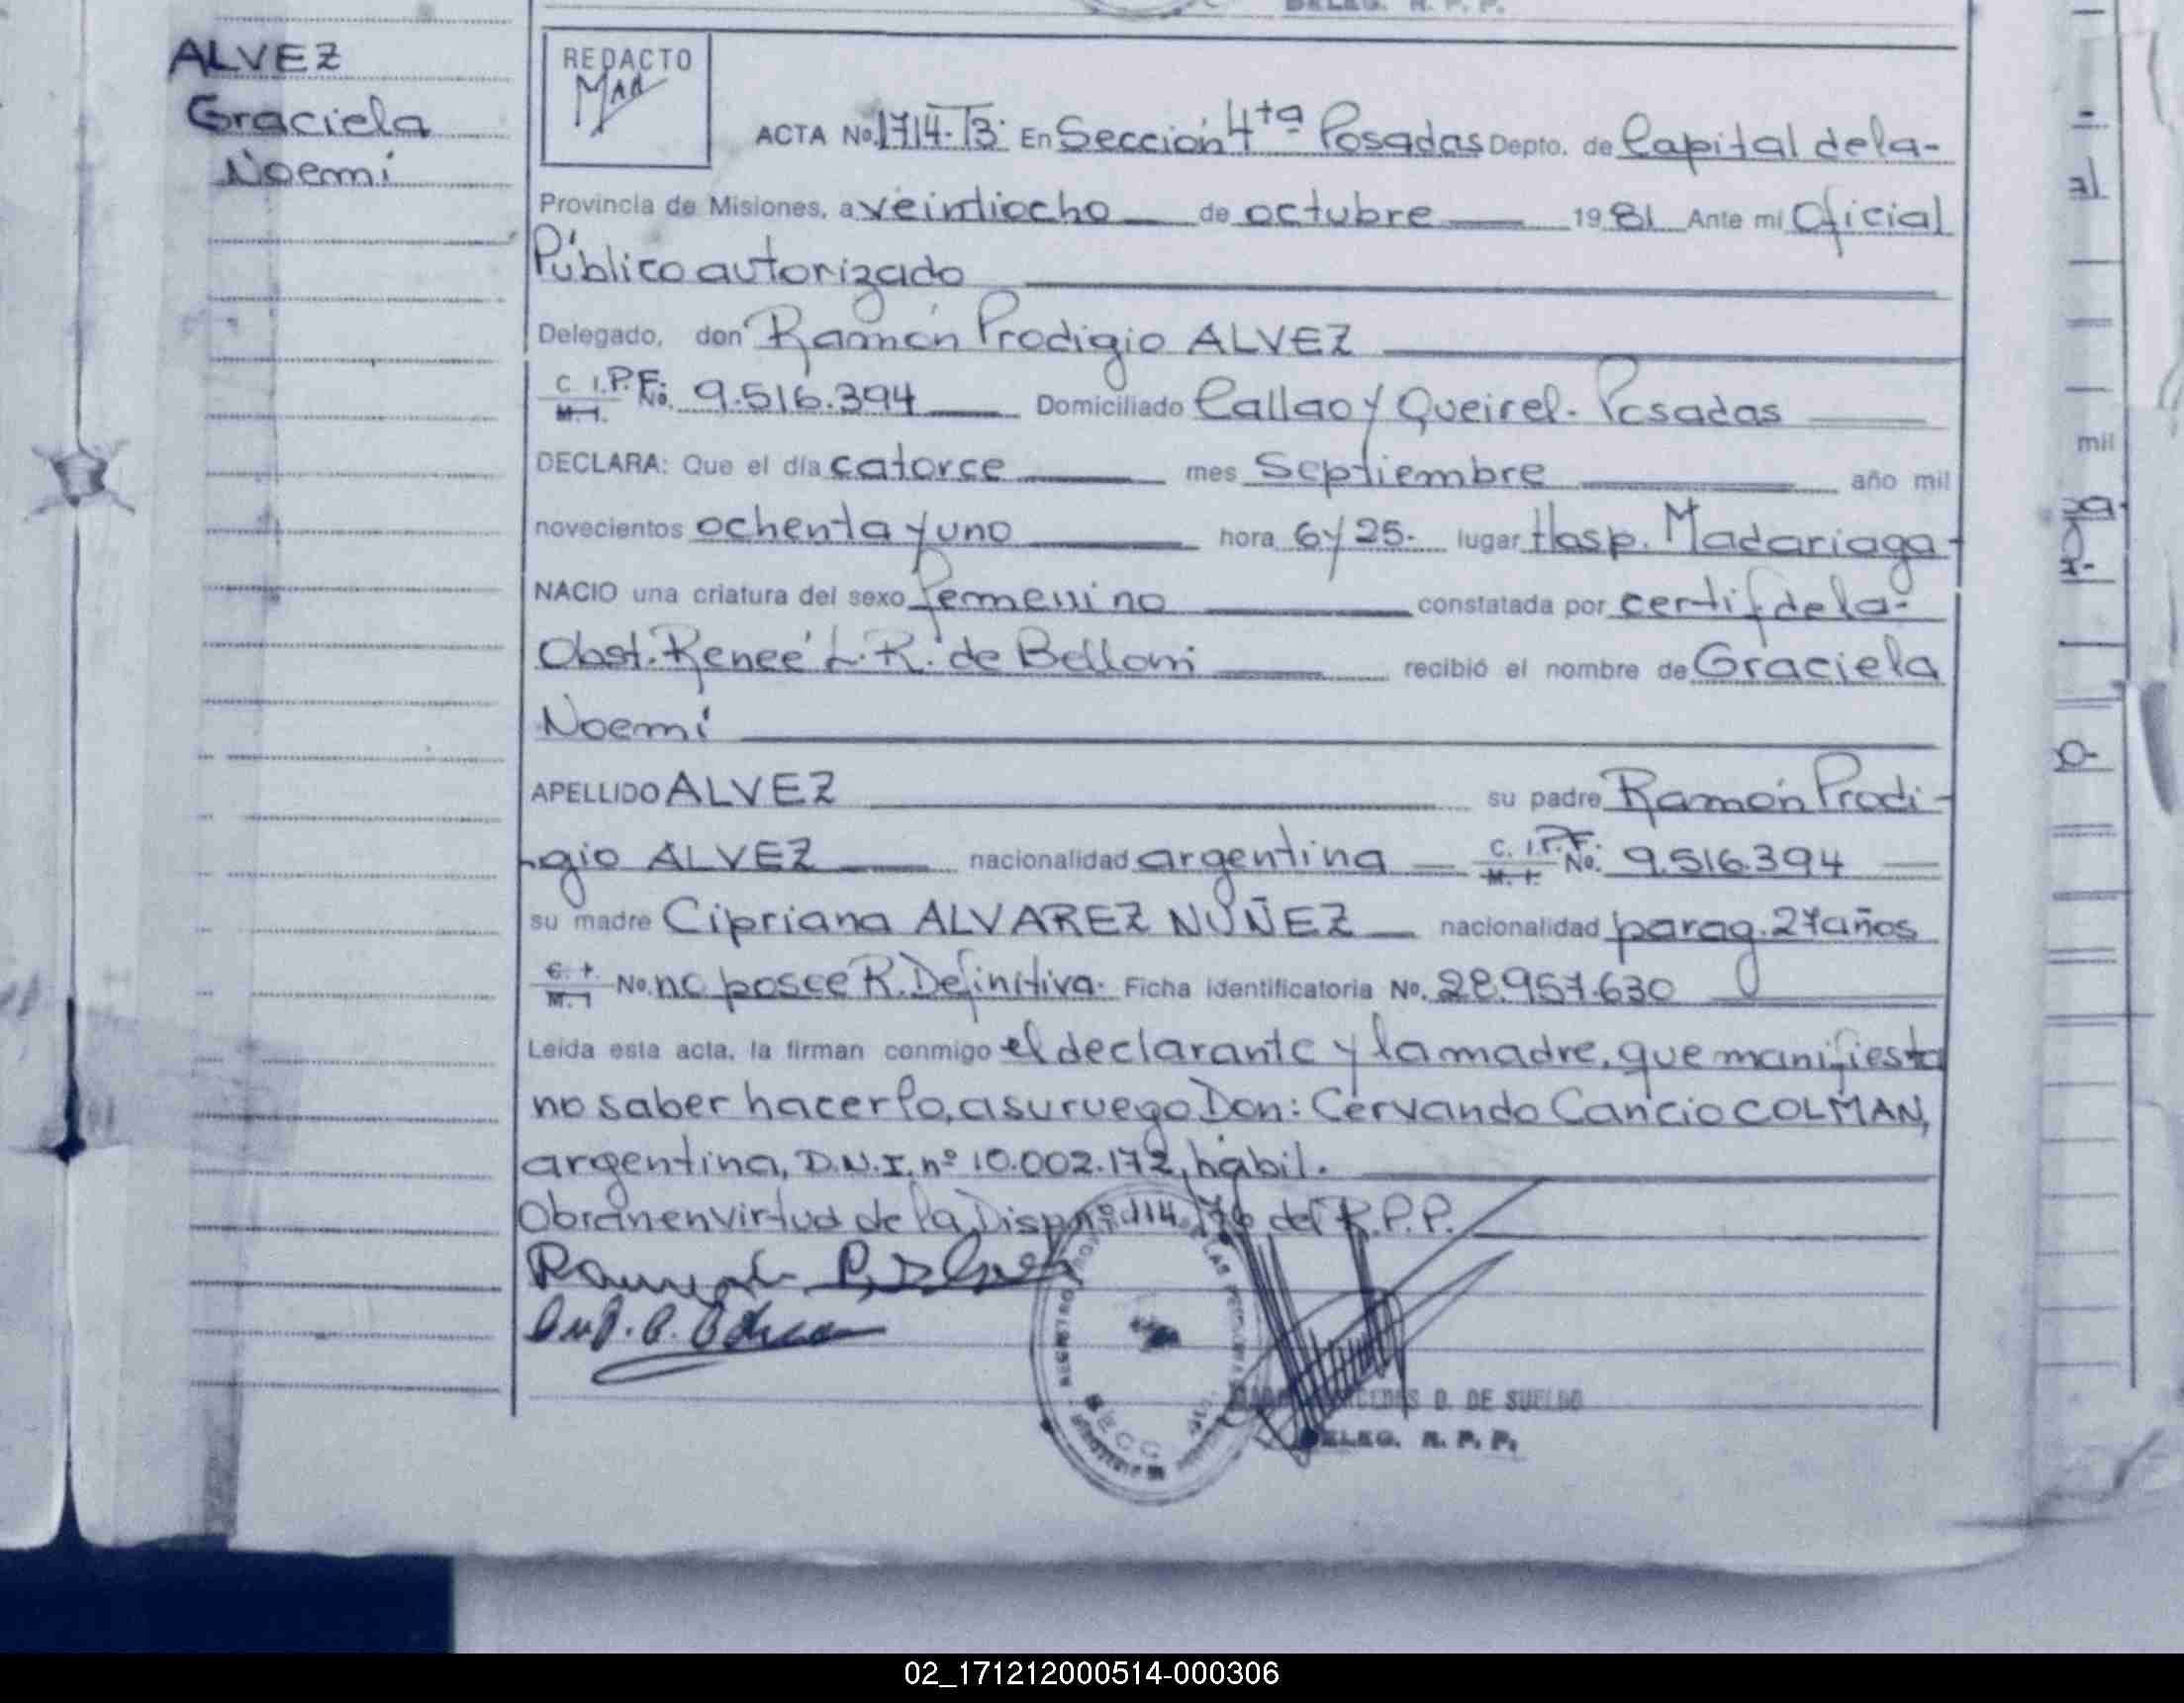 DELEG. R. P. P.
ALVEZ
Graciela
Noemí
REDACTO
ACTA No. 1714-T3: En Sección 4ta Posadas Depto. de Capital de la-
Provincia de Misiones, a veintiocho de octubre 1981 Ante mi Oficial
Público autorizado
Delegado, don Ramón Prodigio ALVEZ
C. I. P.F. M. I. No. 9.516.394 Domiciliado Callao y Queirel. Posadas
DECLARA: Que el día catorce mes Septiembre año mil
novecientos ochenta y uno hora 6 y 25. lugar Hosp. Madariaga
NACIO una criatura del sexo femenino constatada por certif de la-
Obst. Reneé L. R. de Belloni recibió el nombre de Graciela
Noemí
APELLIDO ALVEZ su padre Ramón Prodi-
gio ALVEZ nacionalidad argentina C. I. P.F. M. I. No. 9.516.394
su madre Cipriana ALVAREZ NUÑEZ nacionalidad parag. 27 años
C. I. M. I No. no posee R. Definitiva. Ficha identificatoria No. 28.957.630
Leída esta acta, la firman conmigo el declarante y la madre, que manifiesta
no saber hacerlo, a su ruego Don: Cervando Cancio COLMAN,
argentina, D.N.I. nº 10.002.172, hábil.
Obran en virtud de la Disp. nº 114 76 del R.P.P.
REGISTRO PROV LAS
SECC
D. DE SUELDO
DELEG. R. P. P.
mil
02_171212000514-000306